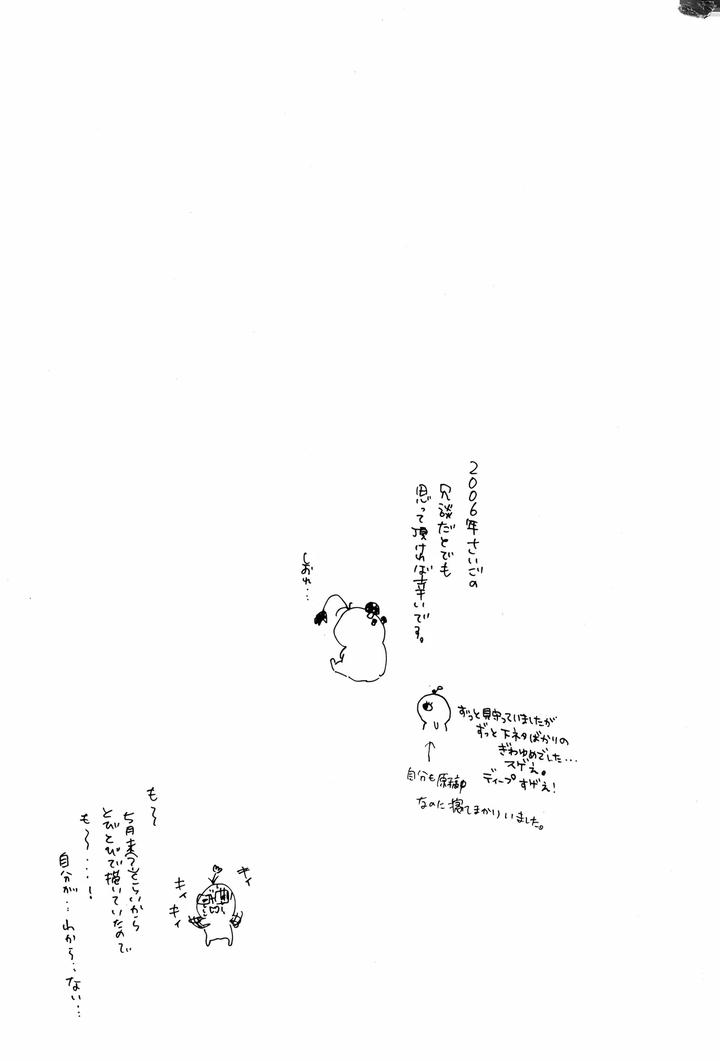 2006年さいごの
冗談だとでも
思って頂ければ幸いです。
しおれ…
ずっと見守っていましたが
ずっと下ネタばかりの
ぎわゆめでした…
スゲェ。
ディープすげぇ!
自分も原稿中
なのに寝てまかりいました。
キィ
キィ
キィ
も～
5月末(?)ぐらいから
とびとびで描いていたので
も～…!
自分が…わから…ない…